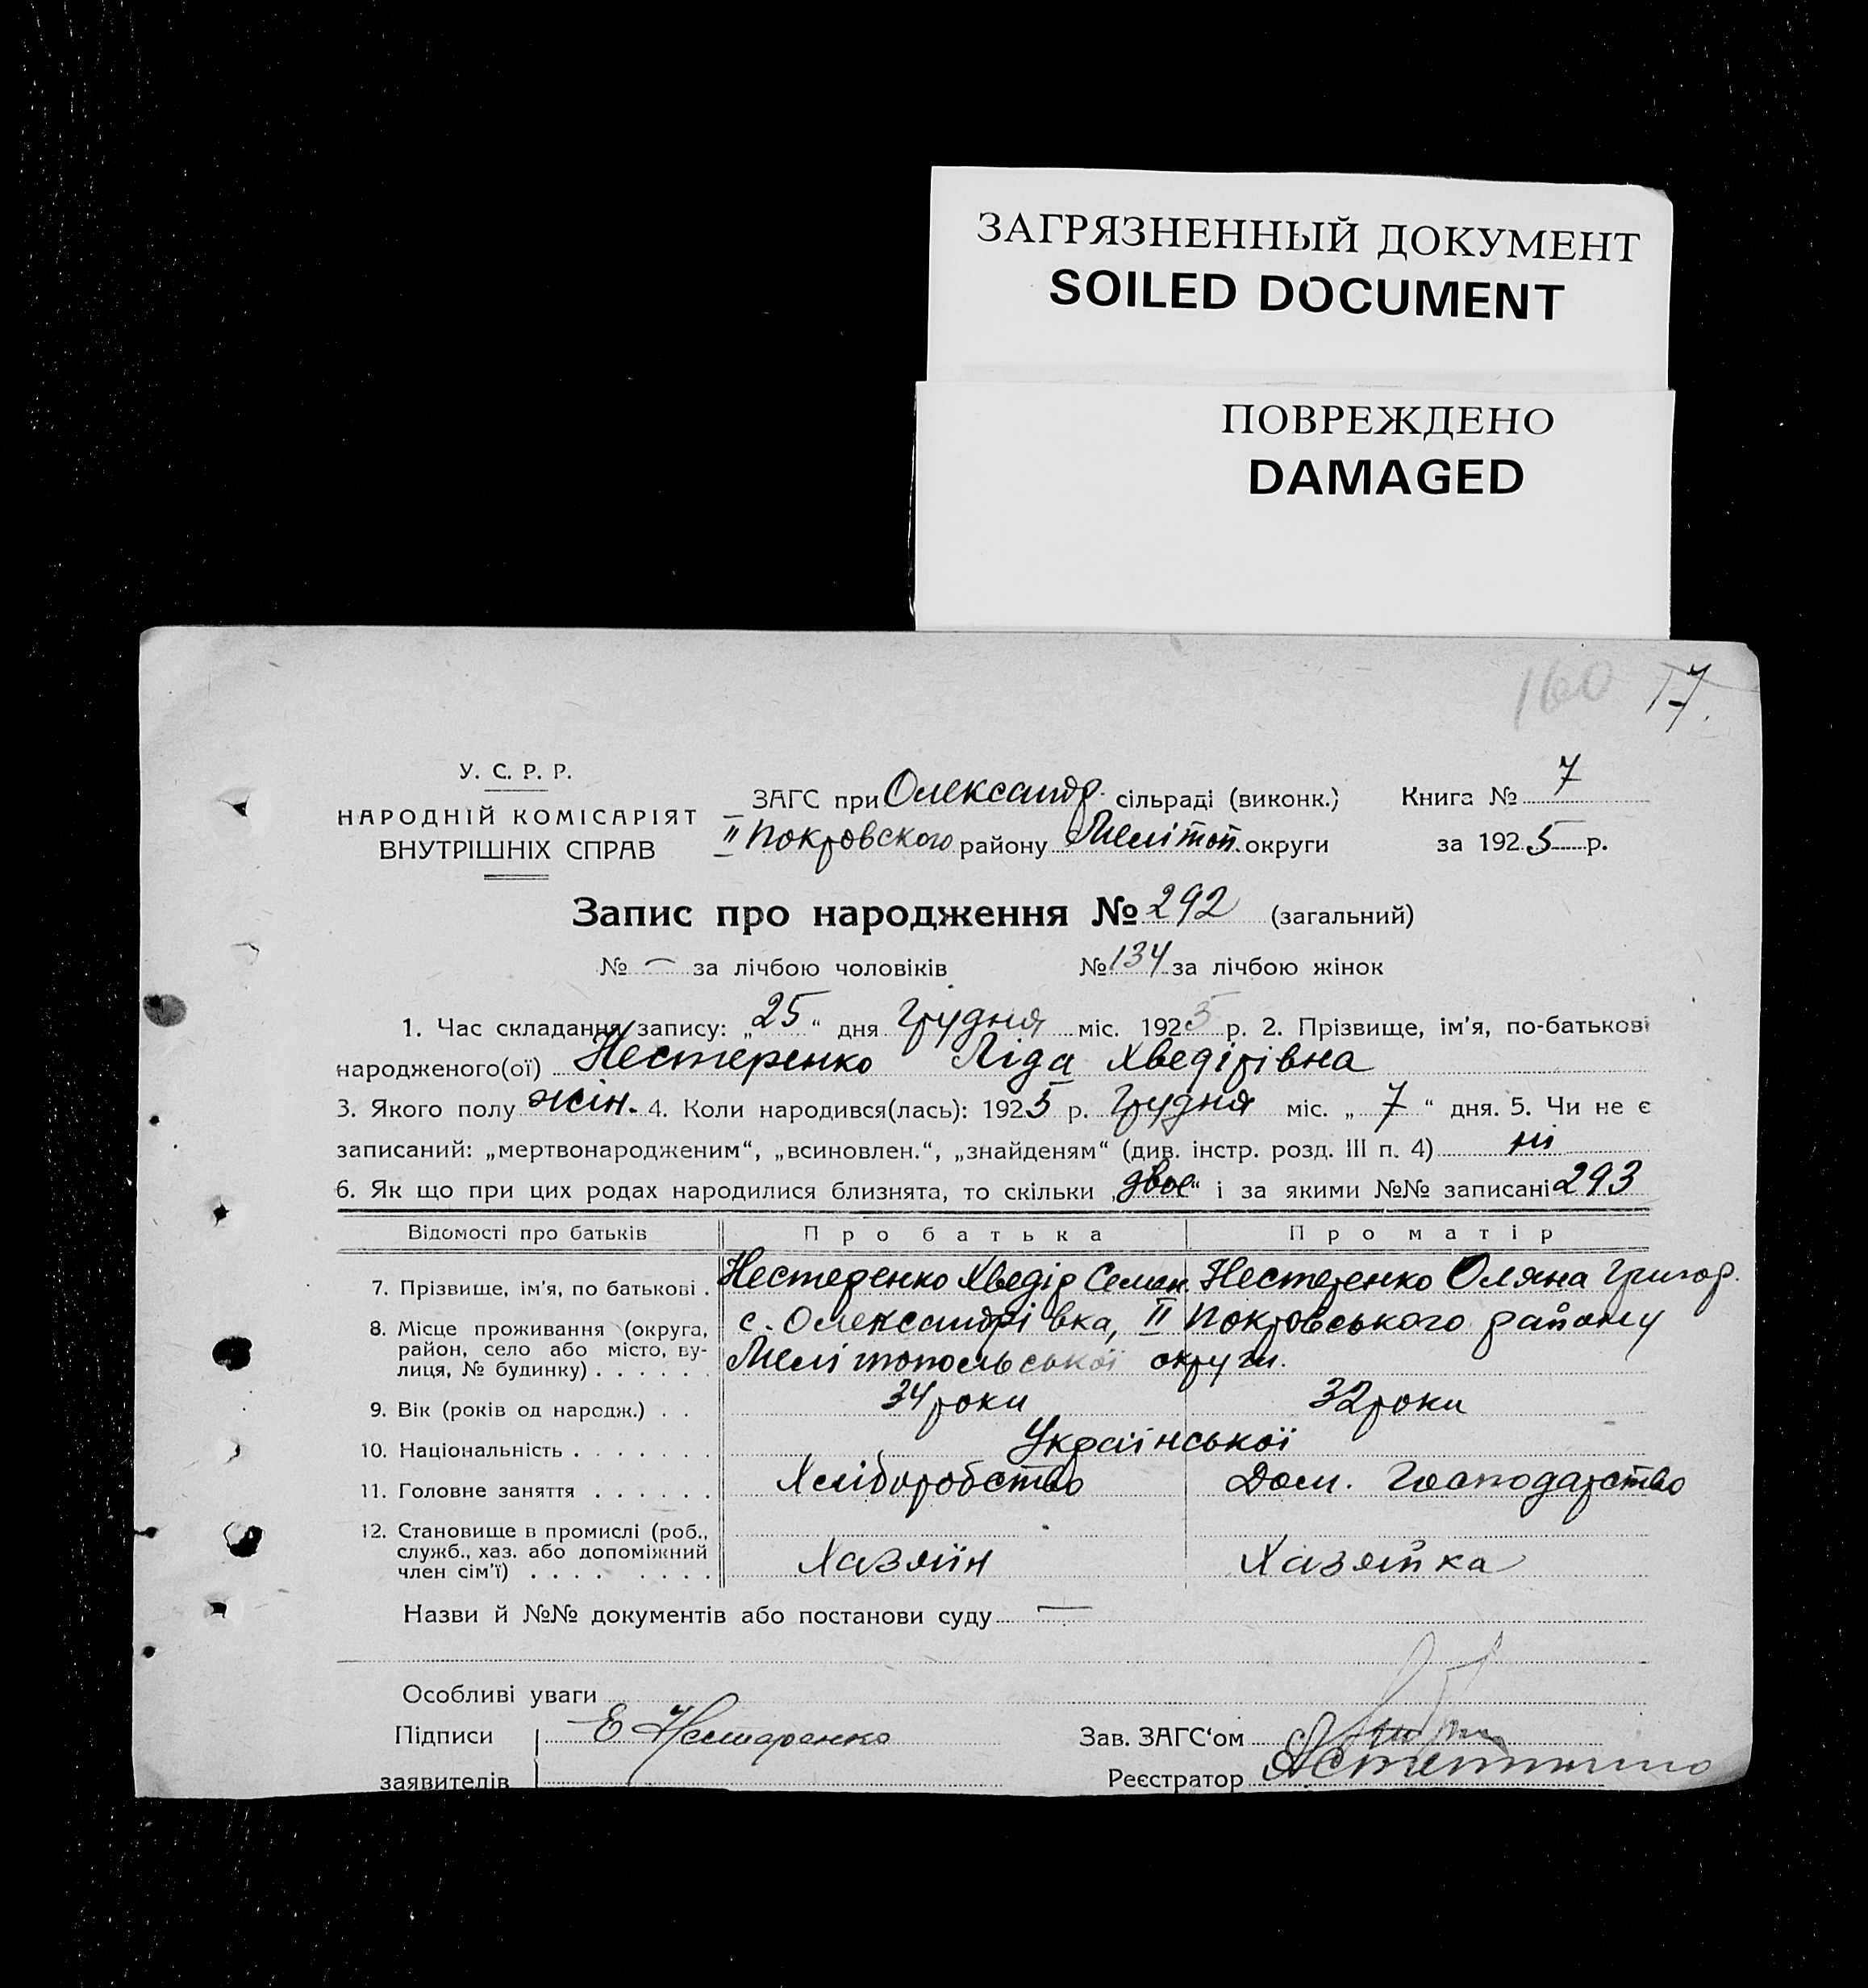 ЗАГРЯЗНЕННЫЙ ДОКУМЕНТ
SOILED DOCUMENT
ПОВРЕЖДЕНО
DAMAGED
160 17.
У. С. Р. Р.
НАРОДНІЙ КОМІСАРІЯТ
ВНУТРІШНІХ СПРАВ
ЗАГС при Олександр. сільраді (виконк.) Книга № 7
II Покровського району Меліт оп. округи за 1925 р.
Запис про народження № 292 (загальний)
№ — за лічбою чоловіків № 134 за лічбою жінок
1. Час складання запису: „25“ дня грудня міс. 1925 р. 2. Прізвище, ім'я, по-батькові
народженого(ої) Нестеренко Ліда Хведірівна
3. Якого полу жін. 4. Коли народився(лась): 1925 р. грудня міс. „7“ дня. 5. Чи не є
записаний: „мертвонародженим“, „всиновлен.“, „знайденям“ (див. інстр. розд. III п. 4) ні
6. Як що при цих родах народилися близнята, то скільки „двоє“ і за якими №№ записані 293
Відомості про батьків Про батька Про матір
7. Прізвище, ім'я, по батькові . Нестеренко Хведір Семен. Нестеренко Оляна Григор.
8. Місце проживання (округа, район, село або місто, вулиця, № будинку) . . . . . . с. Олександрівка, II Покровського району
Мелітопольської округи.
9. Вік (років од народж.) . . 34 роки 32 роки
10. Національність . . . . . . . Української
11. Головне заняття . . . . . . Хліборобство Дом. Господарство
12. Становище в промислі (роб., служб., хаз. або допоміжний член сім'ї) . . . . . . . . Хазяїн Хазяйка
Назви й №№ документів або постанови суду —
Особливі уваги
Підписи Е Нестеренко Зав. ЗАГС'ом
заявителів Реєстратор